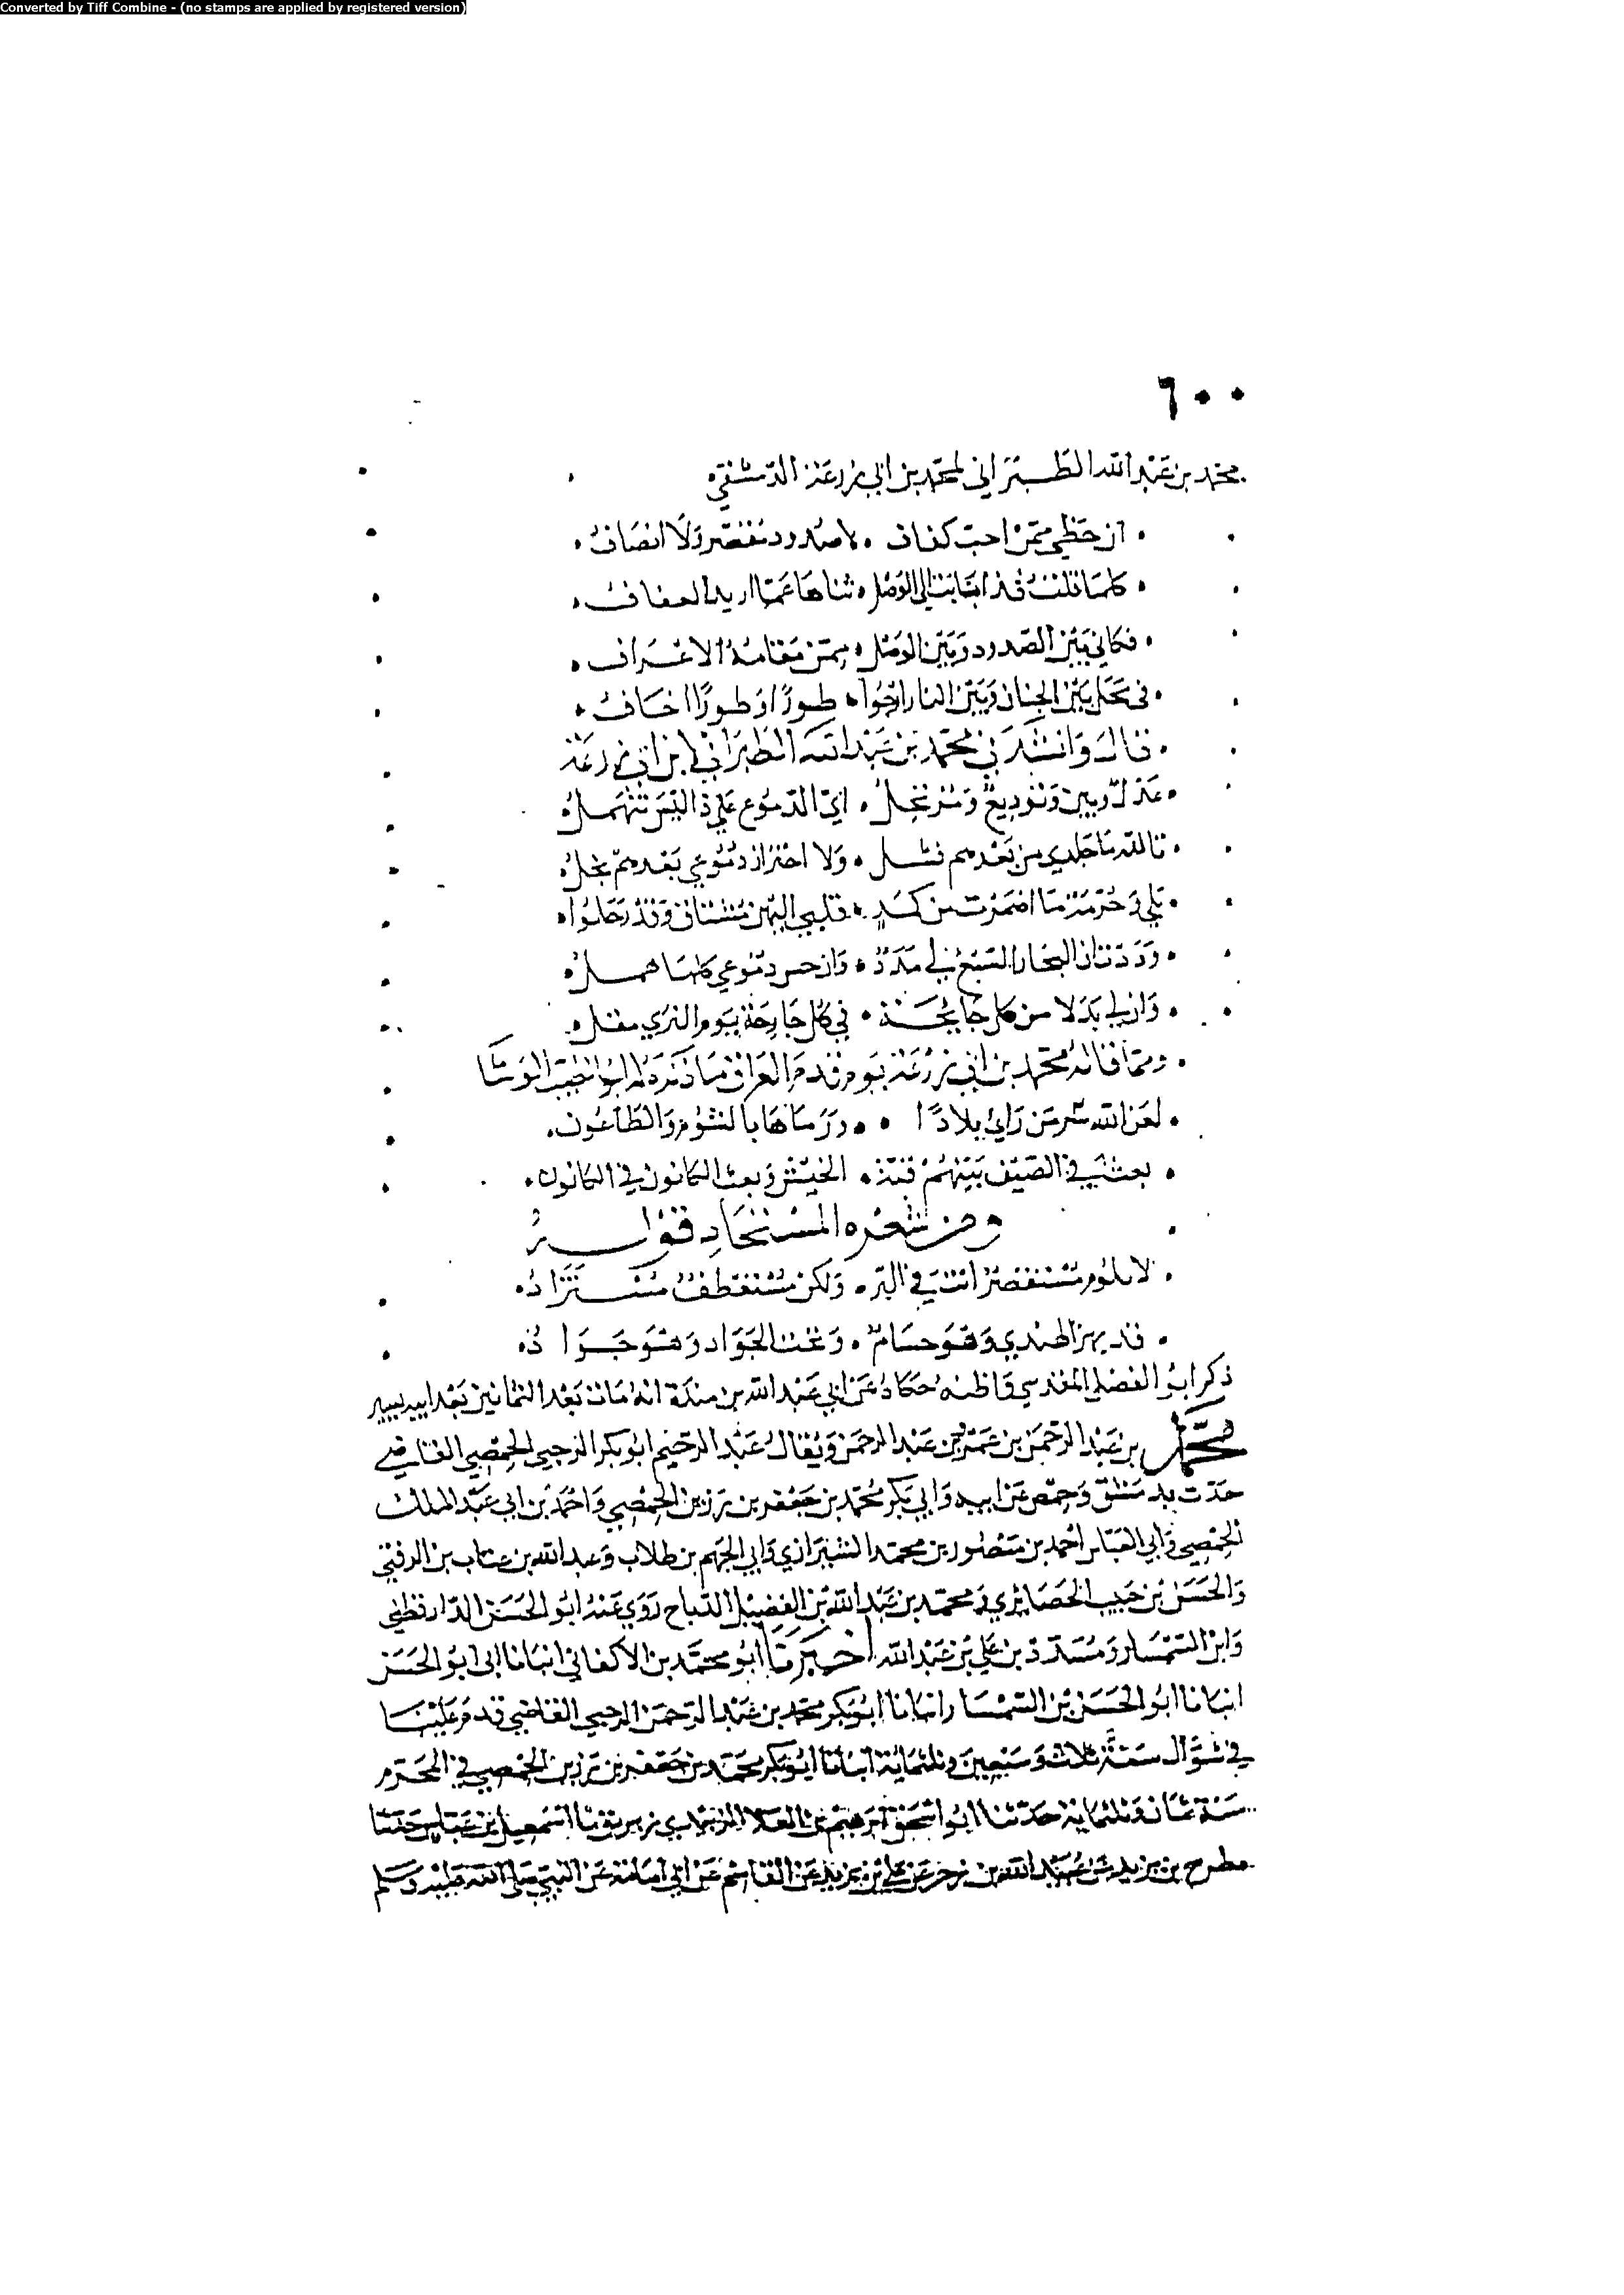 Converted by Tiff Combine - (no stamps are applied by registered version)
٦٠٠
محمد بن عبد الله الطبراني لمحمد بن ابي زرعة الدمشقي
ان حظي ممن احب كفاف لا صدود مقصر ولا انصاف
كلما قلت قد انابت الى الوصل ثناها عما اريد العفاف
فكاني بين الصدود وبين الوصل ممن مقامه الاعراف
في محل بين الجنان وبين النار ارجوا طورا وطورا اخاف
قال وانشدني محمد بن عبد الله الطبراني لابن ابي زرعة
وتوديع ومرتحل اي الدموع على ذا ليس تنهمل
تالله ما جلدي من بعدهم ولا اختزان دموعي بعدهم بخل
بلى وحرمة ما اضمرت من كمد قلبي اليهن مشتاق وقد رحلوا
وددت ان البحار السبع لي مدد وان دموعي كلها همل
وان لي بدلا من كل جائحة في كل جارحة يوم النوى مقل
ومما قاله محمد بن ابي زرعة يوم قدم العراق ما ذكره له ابو الطيب الوشا
لعن الله سر من راى بلادا ورماها بالشؤم والطاعون
بعت في الصيف بينهم قبة الخيش وبعت الكانون في الكانون
ومن شعره المستجاد قوله
لا ملوم مستقصر انت في البر ولكن مستعطف مستزاد
قد يهز الهندي وهو حسام ويحث الجواد وهو جواد
ذكر ابو الفضل المقدسي فاظنه حكاه عن ابي عبد الله بن مندة انه مات بعد الثمانين بعد ابيه
محمد بن عبد الرحمن بن عمرو بن عبد الرحمن ويقال عبد الرحيم ابو بكر الرحبي الحمصي القاضي
حدث بدمشق وحمص عن ابيه وابي بكر محمد بن جعفر بن رزين الحمصي واحمد بن ابي عبد الملك
الحمصي وابي العباس احمد بن منصور بن محمد الشيرازي وابي الجهم بن طلاب وعبد الله بن عتاب بن الزفتي
والحسن بن حبيب الحصائري ومحمد بن عبد الله بن الفضيل روى عنه ابو الحسن الدارقطني
وابن السمسار ومسدد بن علي بن عبد الله اخبرنا ابو محمد بن الاكفاني انبانا ابو الحسن
انبانا ابو الحسن بن السمسار انبانا ابو بكر محمد بن عبد الرحمن الرحبي القاضي قدم علينا
في شوال سنة ثلاث وسبعين وثلثماية انبانا ابو بكر محمد بن جعفر بن رزين الحمصي في المحرم
سنة ثمان وثلثماية حدثنا ابو اسحق ابرهيم بن العلا الزبيدي زبريق نا اسمعيل بن عياش حدثنا
مطرح بن يزيد عن عبيد الله بن زحر عن علي بن يزيد عن القاسم عن ابي امامة عن النبي صلى الله عليه وسلم